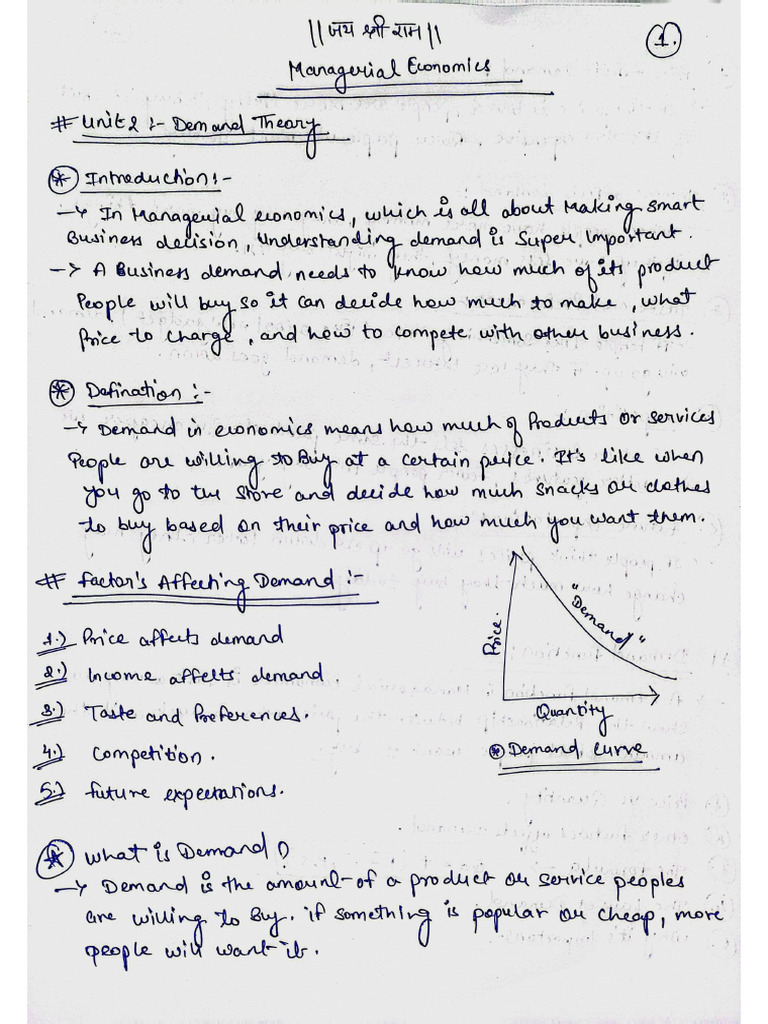 ||जय श्री राम||
1.
Managerial Economics
# Unit 2 :- Demand Theory
* Introduction :-
→ In Managerial economics, which is all about Making smart
Business decision, understanding demand is Super Important.
→ A Business demand needs to know how much of its product
People will buy so it can decide how much to make, what
Price to charge, and how to compete with other business.
* Defination :-
→ Demand in economics means how much of Products or services
People are willing to Buy at a certain price. It's like when
you go to the store and decide how much snacks or clothes
to buy based on their price and how much you want them.
# Factor's Affecting Demand :-
1.) Price affects demand
2.) Income affects demand.
3.) Taste and Preferences.
4.) Competition.
5.) future expectations.
Price.
"Demand"
Quantity
* Demand curve
* What is Demand?
→ Demand is the amount of a product or service peoples
are willing to Buy. if something is popular or cheap, more
people will want it.